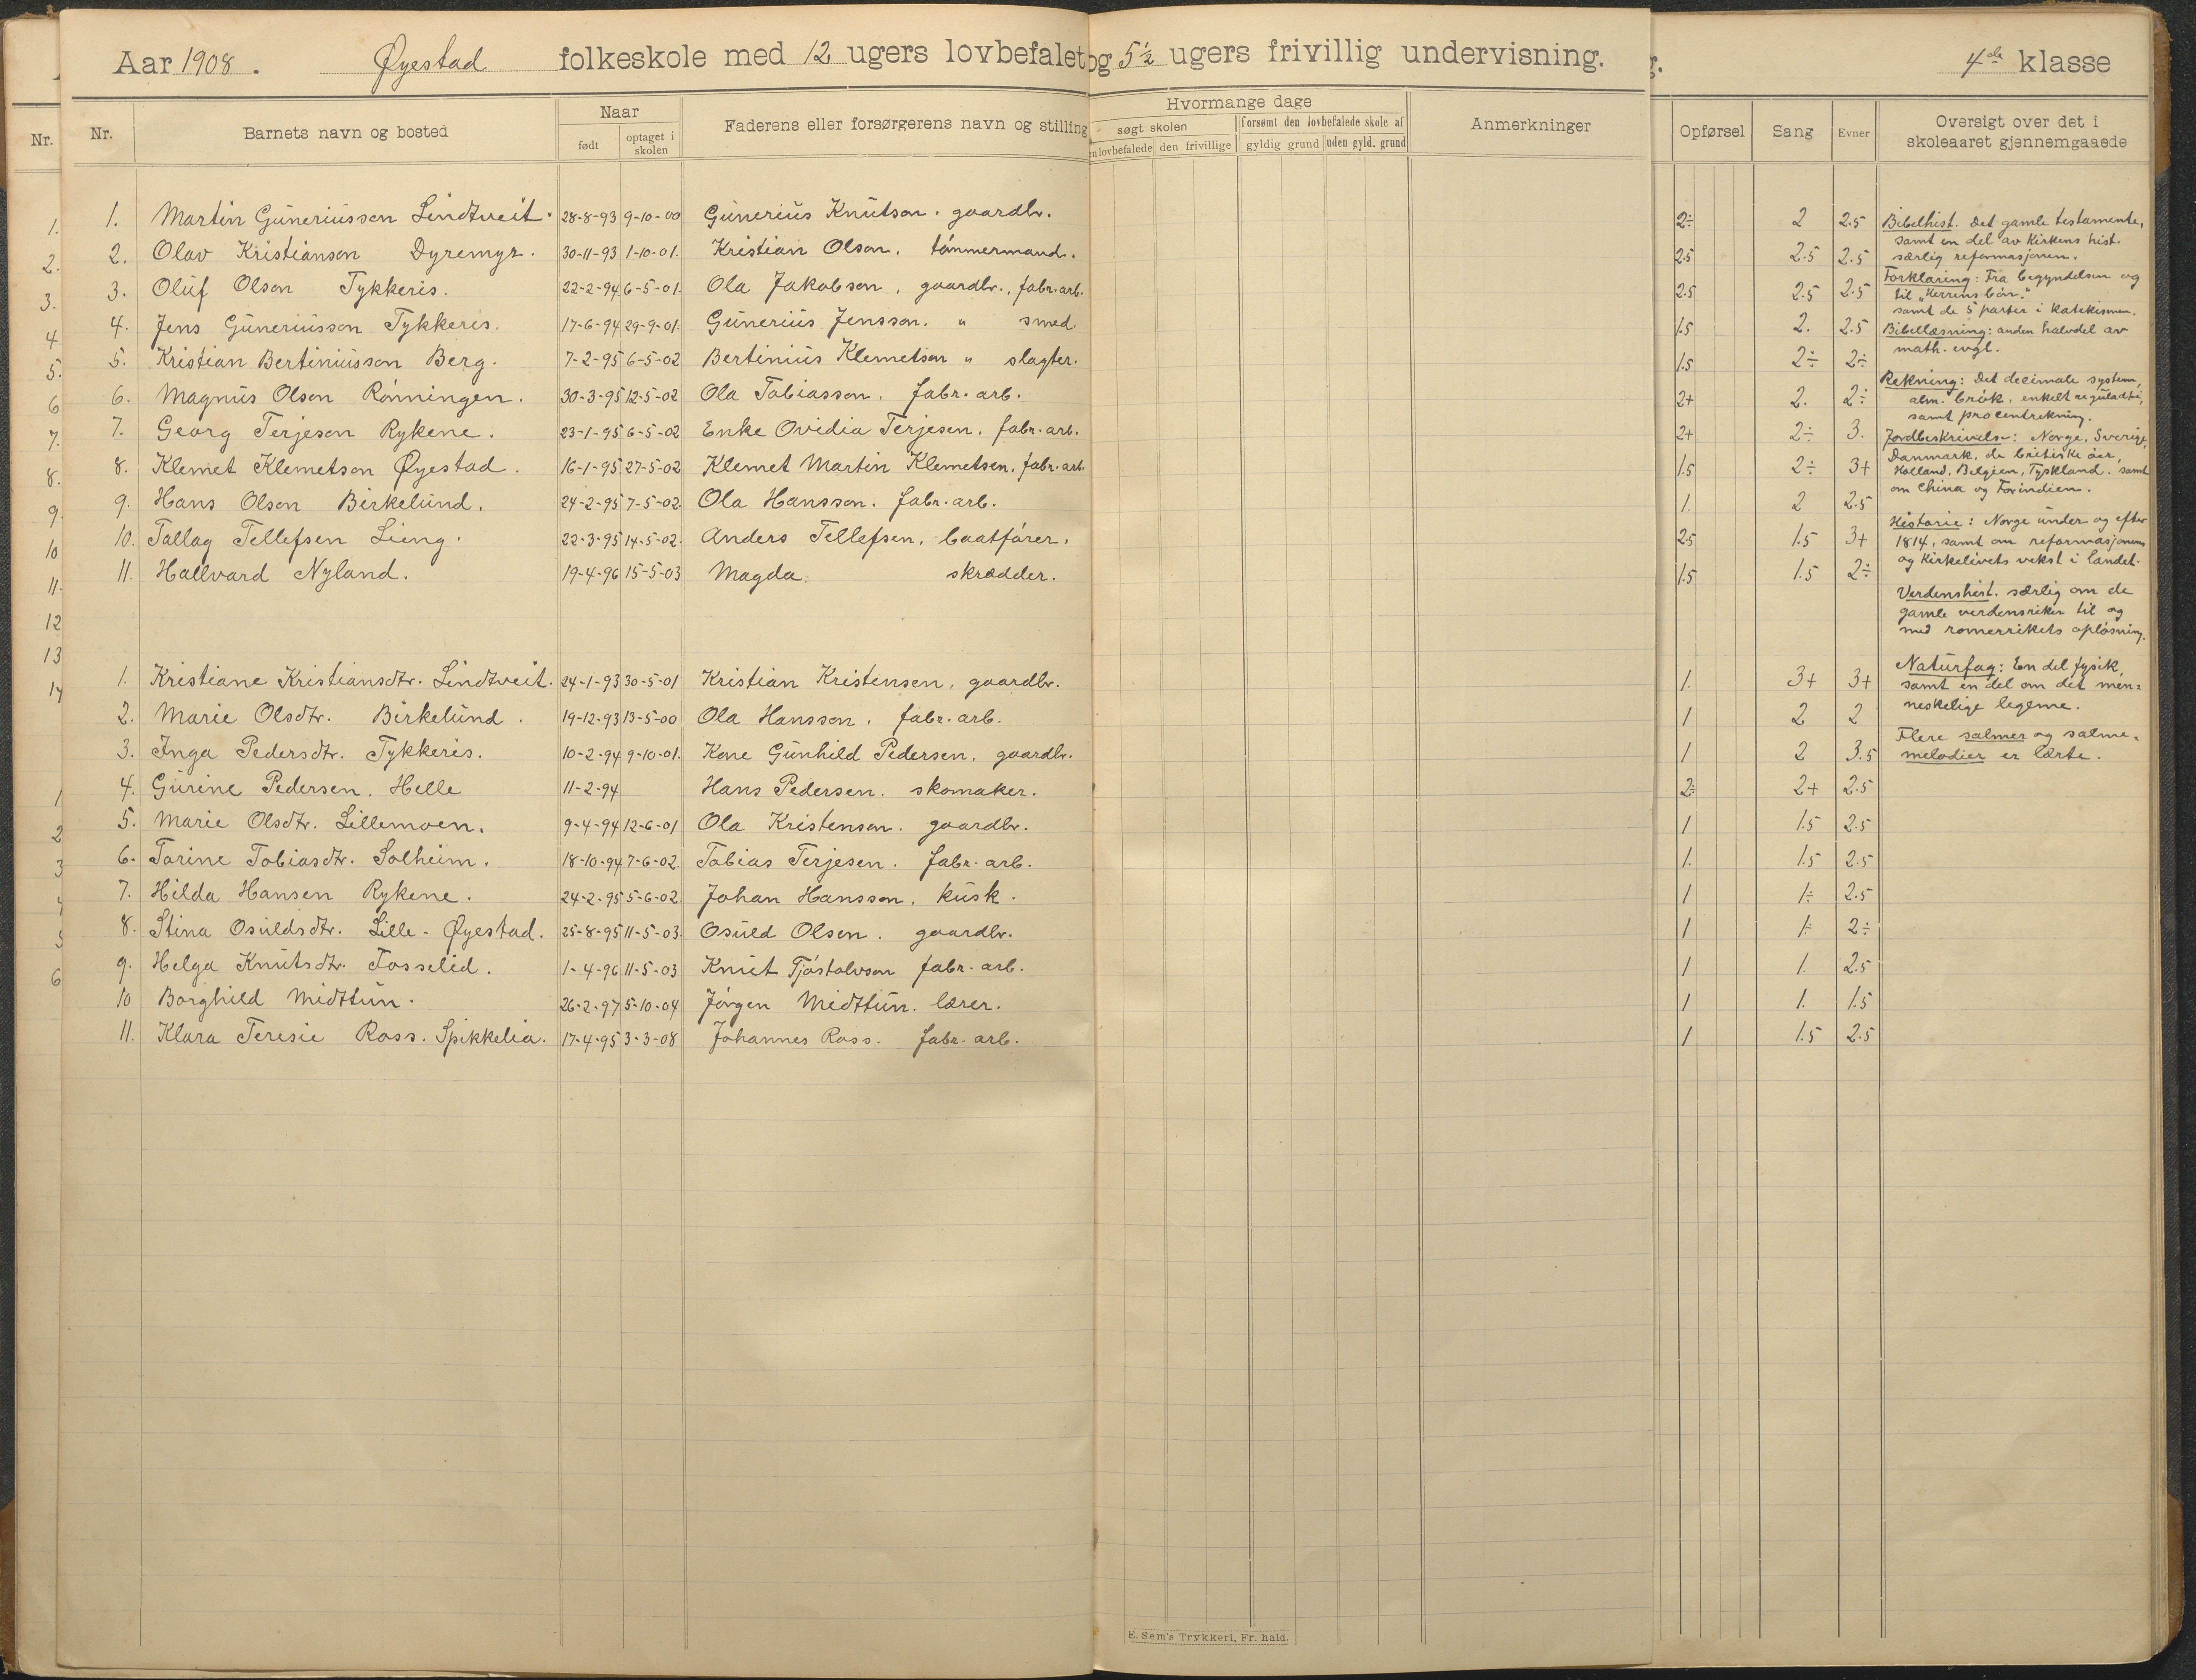 Aar 1908. Øyestad folkeskole med 12 ugers lovbefalet og 5½ ugers frivillig undervisning. g. 4de klasse
Nr. Nr. Barnets navn og bosted Naar født optaget i skolen Faderens eller forsørgerens navn og stilling Hvormange dage søgt skolen en lovbefalede den frivillige forsømt den lovbefalede skole af gyldig grund uden gyld. grund Anmerkninger Opførsel Sang Evner Oversigt over det i skoleaaret gjennemgaaede
1. 1. Martin Guneriusson Lindtveit. 28-8-93 9-10-00 Gunerius Knutson. gaardbr. 2÷ 2 2.5
2. 2. Olav Kristianson Dyremyr. 30-11-93 1-10-01. Kristian Olson. tømmermand. 2.5 2.5 2.5
3. 3. Oluf Olson Tykkeris. 22-2-94 6-5-01. Ola Jakobson, gaardbr., fabr.arb. 2.5 2.5 2.5
4 4. Jens Guneriusson Tykkeris. 17-6-94 29-9-01. Gunerius Jensson. " smed. 1.5 2. 2.5
5. 5. Kristian Bertiniusson Berg. 7-2-95 6-5-02 Bertinius Klemetson " slagter. 1.5 2÷ 2÷
6 6. Magnus Olson Rønningen. 30-3-95 12-5-02 Ola Tobiasson. fabr. arb. 2+ 2. 2÷
7. 7. Georg Terjeson Rykene. 23-1-95 6-5-02 Enke Ovidia Terjesen. fabr. arb. 2+ 2÷ 3.
8. 8. Klemet Klemetson Øyestad. 16-1-95 27-5-02 Klemet Martin Klemetsen, fabr. arb. 1.5 2÷ 3+
9 9. Hans Olson Birkelund. 24-2-95 7-5-02. Ola Hansson. fabr. arb. 1. 2 2.5
10 10. Tallag Tellefsen Lieng. 22-3-95 14-5-02. Anders Tellefsen. baatfører. 2.5 1.5 3+
11. 11. Hallvard Nyland. 19-4-96 15-5-03 Magda. skrædder. 1.5 1.5 2÷
12
13
14 1. Kristiane Kristiansdtr. Lindtveit. 24-1-93 30-5-01 Kristian Kristensen, gaardbr. 1. 3+ 3+
2. Marie Olsdtr. Birkelund. 19-12-93 13-5-00 Ola Hansson. fabr. arb. 1 2 2
3. Inga Pedersdtr. Tykkeris. 10-2-94 9-10-01. Kone Gunhild Pedersen. gaardbr. 1 2 3.5
1 4. Gurine Pedersen. Helle 11-2-94 Hans Pedersen. skomaker. 2÷ 2+ 2.5
2 5. Marie Olsdtr. Lillemoen. 9-4-94 12-6-01 Ola Kristenson. gaardbr. 1 1.5 2.5
3 6. Torine Tobiasdtr. Solheim. 18-10-94 7-6-02. Tobias Terjesen. fabr. arb. 1. 1.5 2.5
4 7. Hilda Hansen Rykene. 24-2-95 5-6-02. Johan Hansson. kusk. 1 1÷ 2.5
5 8. Stina Osuldsdtr. Lille-Øyestad. 25-8-95 11-5-03. Osuld Olsen. gaardbr. 1 1÷ 2÷
6 9. Helga Knutsdtr. Fosselid. 1-4-96 11-5-03 Knut Tjøstolvson fabr. arb. 1 1. 2.5
10 Borghild Midttun. 26-2-97 5-10-04 Jørgen Midttun. lærer. 1 1. 1.5
11. Klara Teresie Ross. Spikkelia. 17-4-95 3-3-08 Johannes Ross. fabr. arb. 1 1.5 2.5
Bibelhist. Det gamle testamente,
samt en del av kirkens hist.
særlig reformasjonen.
Forklaring: Fra begyndelsen og
til "Herrens bøn."
samt de 5 parter i katekismen.
Bibellæsning: anden halvdel av
math. evgl.
Rekning: Det decimale system,
alm. brøk, enkelt reguladtri,
samt procentrekning.
Jordbeskrivelse: Norge, Sverige,
Danmark, de britiske øer,
Holland, Belgien, Tyskland. samt
om China og Forindien.
Historie: Norge under og efter
1814, samt om reformasjonen
og kirkelivets vekst i landet.
Verdenshist. særlig om de
gamle verdensriker til og
med romerrikets opløsning.
Naturfag: En del fysik,
samt en del om det men=
neskelige legeme.
Flere salmer og salme=
melodier er lærte.
E. Sem's Trykkeri, Fr. hald.